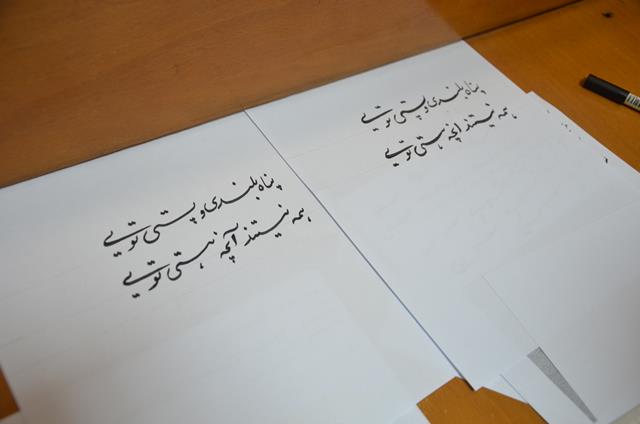 پناه بلندی و پستی تویی
همه نیستند آنچه هستی تویی
پناه بلندی و پستی تویی
همه نیستند آنچه هستی تویی